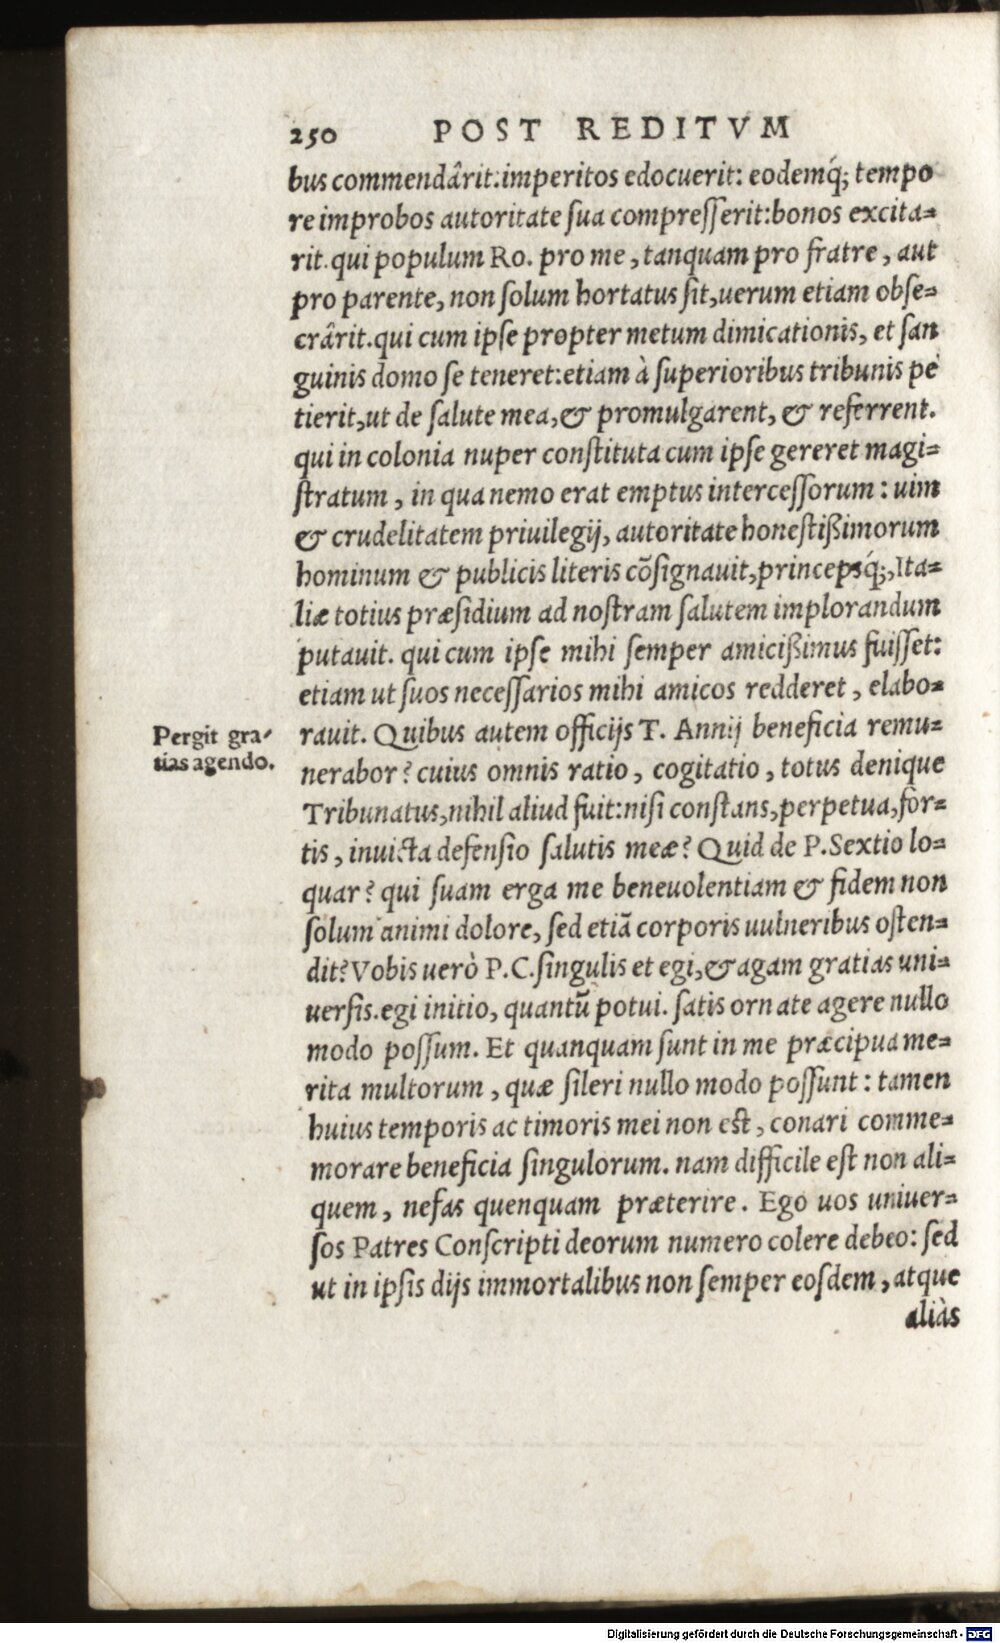 250 POST REDITVM
bus commendârit.imperitos edocuerit: eodemq́; tempo
re improbos autoritate sua compresserit:bonos excita-
rit.qui populum Ro. pro me, tanquam pro fratre, aut
pro parente, non solum hortatus sit,uerum etiam obse-
crârit.qui cum ipse propter metum dimicationis, et san
guinis domo se teneret:etiam à superioribus tribunis pe
tierit,ut de salute mea,& promulgarent, & referrent.
qui in colonia nuper constituta cum ipse gereret magi-
stratum, in qua nemo erat emptus intercessorum: uim
& crudelitatem priuilegij, autoritate honestißimorum
hominum & publicis literis cõsignauit,princepsq́;,Ita-
liæ totius præsidium ad nostram salutem implorandum
putauit. qui cum ipse mihi semper amicißimus fuisset:
etiam ut suos necessarios mihi amicos redderet, elabo-
rauit. Quibus autem officijs T. Annij beneficia remu-
Pergit gra-
tias agendo.
nerabor? cuius omnis ratio, cogitatio, totus denique
Tribunatus,nihil aliud fuit:nisi constans,perpetua,for-
tis, inuicta defensio salutis meæ? Quid de P.Sextio lo-
quar? qui suam erga me beneuolentiam & fidem non
solum animi dolore, sed etiã corporis uulneribus osten-
dit?Vobis uerò P.C.singulis et egi,& agam gratias uni-
uersis.egi initio, quantũ potui. satis ornate agere nullo
modo possum. Et quanquam sunt in me præcipua me-
rita multorum, quæ sileri nullo modo possunt: tamen
huius temporis ac timoris mei non est, conari comme-
morare beneficia singulorum. nam difficile est non ali-
quem, nefas quenquam præterire. Ego uos uniuer-
sos Patres Conscripti deorum numero colere debeo: sed
ut in ipsis dijs immortalibus non semper eosdem, atque
aliàs
Digitalisierung gefördert durch die Deutsche Forschungsgemeinschaft - DFG